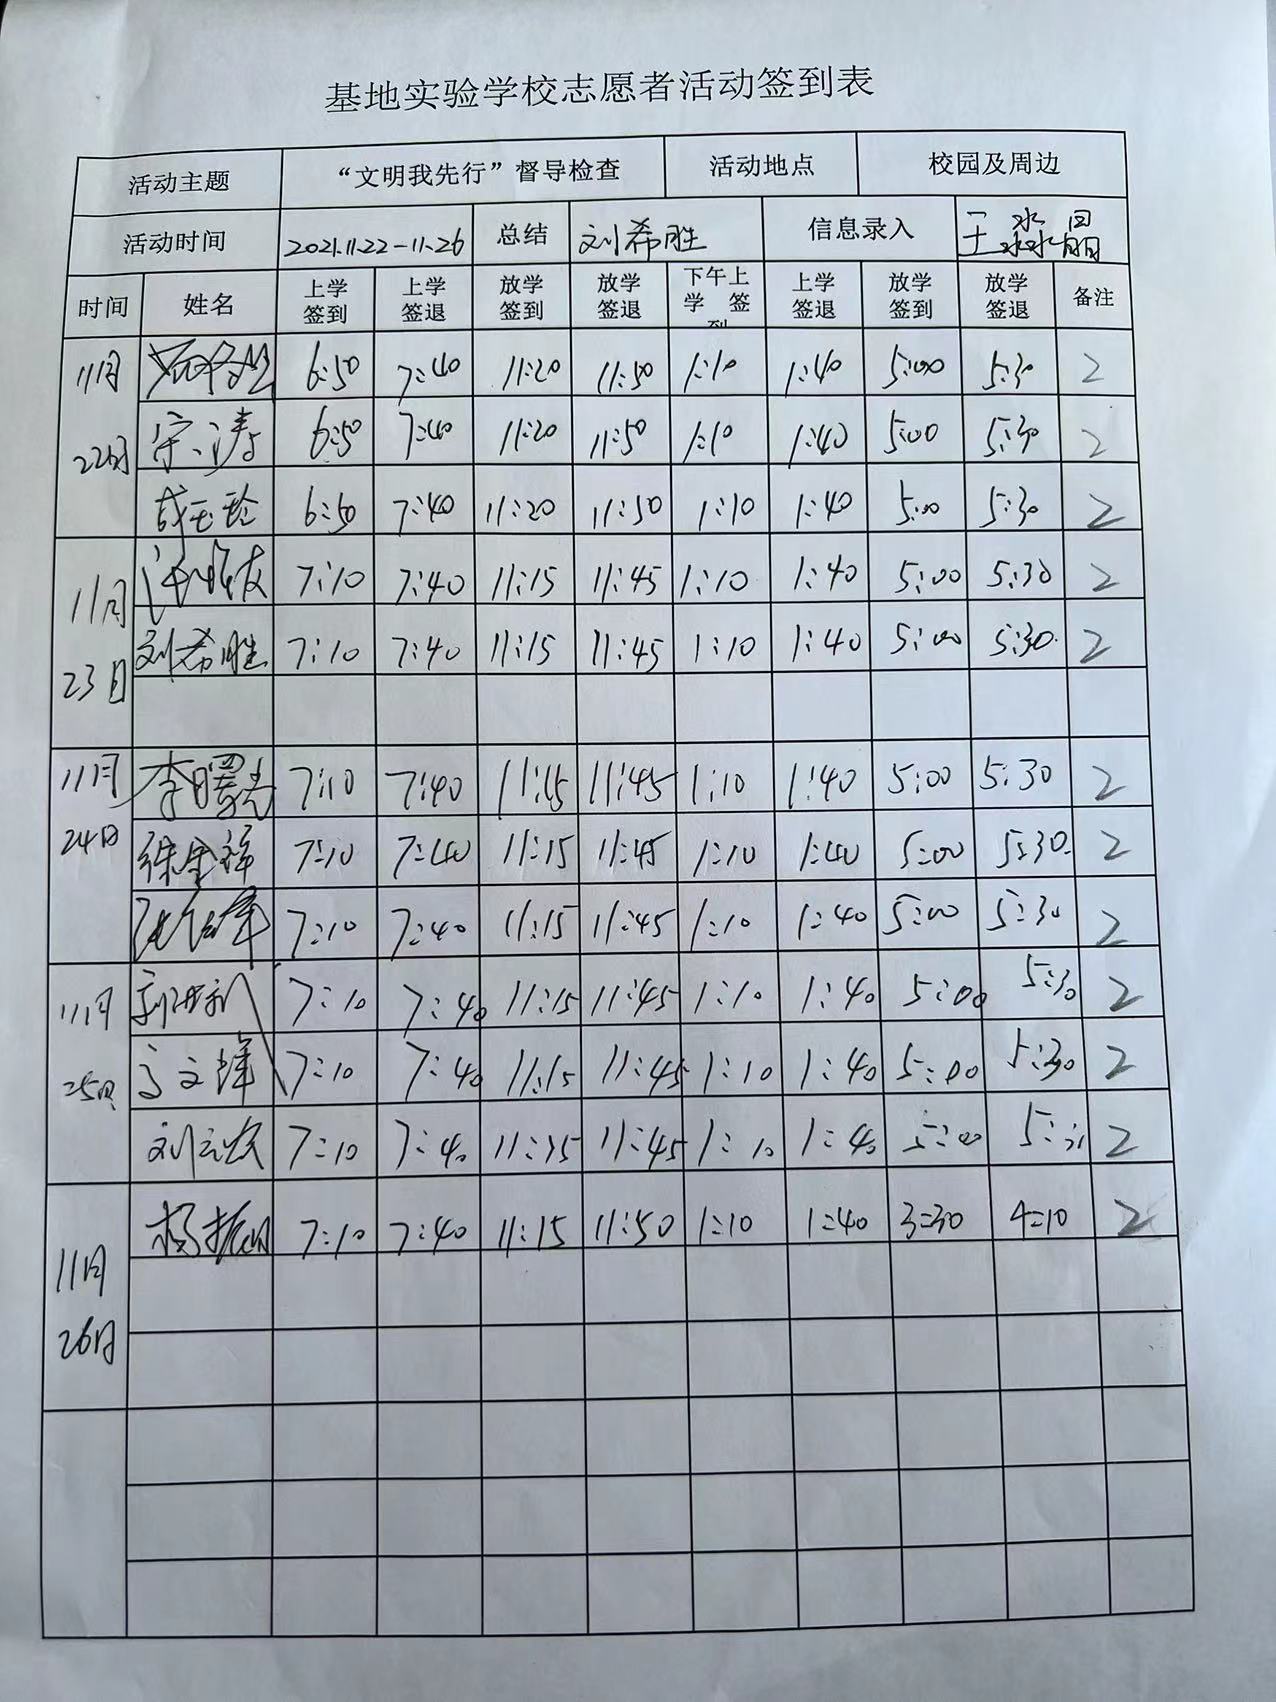 基地实验学校志愿者活动签到表
活动主题 “文明我先行”督导检查 活动地点 校园及周边
活动时间 2021.11.22-11.26 总结 刘希胜 信息录入 王淼晶
时间 姓名 上学签到 上学签退 放学签到 放学签退 下午上学 签到 上学签退 放学签到 放学签退 备注
11月22日 6:50 7:40 11:20 11:50 1:10 1:40 5:00 5:30 2
宋涛 6:50 7:40 11:20 11:50 1:10 1:40 5:00 5:30 2
成玉玲 6:50 7:40 11:20 11:50 1:10 1:40 5:00 5:30 2
11月23日 7:10 7:40 11:15 11:45 1:10 1:40 5:00 5:30 2
刘希胜 7:10 7:40 11:15 11:45 1:10 1:40 5:00 5:30 2
11月24日 李曙光 7:10 7:40 11:15 11:45 1:10 1:40 5:00 5:30 2
徐金锋 7:10 7:40 11:15 11:45 1:10 1:40 5:00 5:30 2
7:10 7:40 11:15 11:45 1:10 1:40 5:00 5:30 2
11月25日 7:10 7:40 11:15 11:45 1:10 1:40 5:00 5:30 2
7:10 7:40 11:15 11:45 1:10 1:40 5:00 5:30 2
7:10 7:40 11:45 1:10 1:40 5:00 2
11月26日 7:10 7:40 11:15 11:50 1:10 1:40 3:30 4:10 2